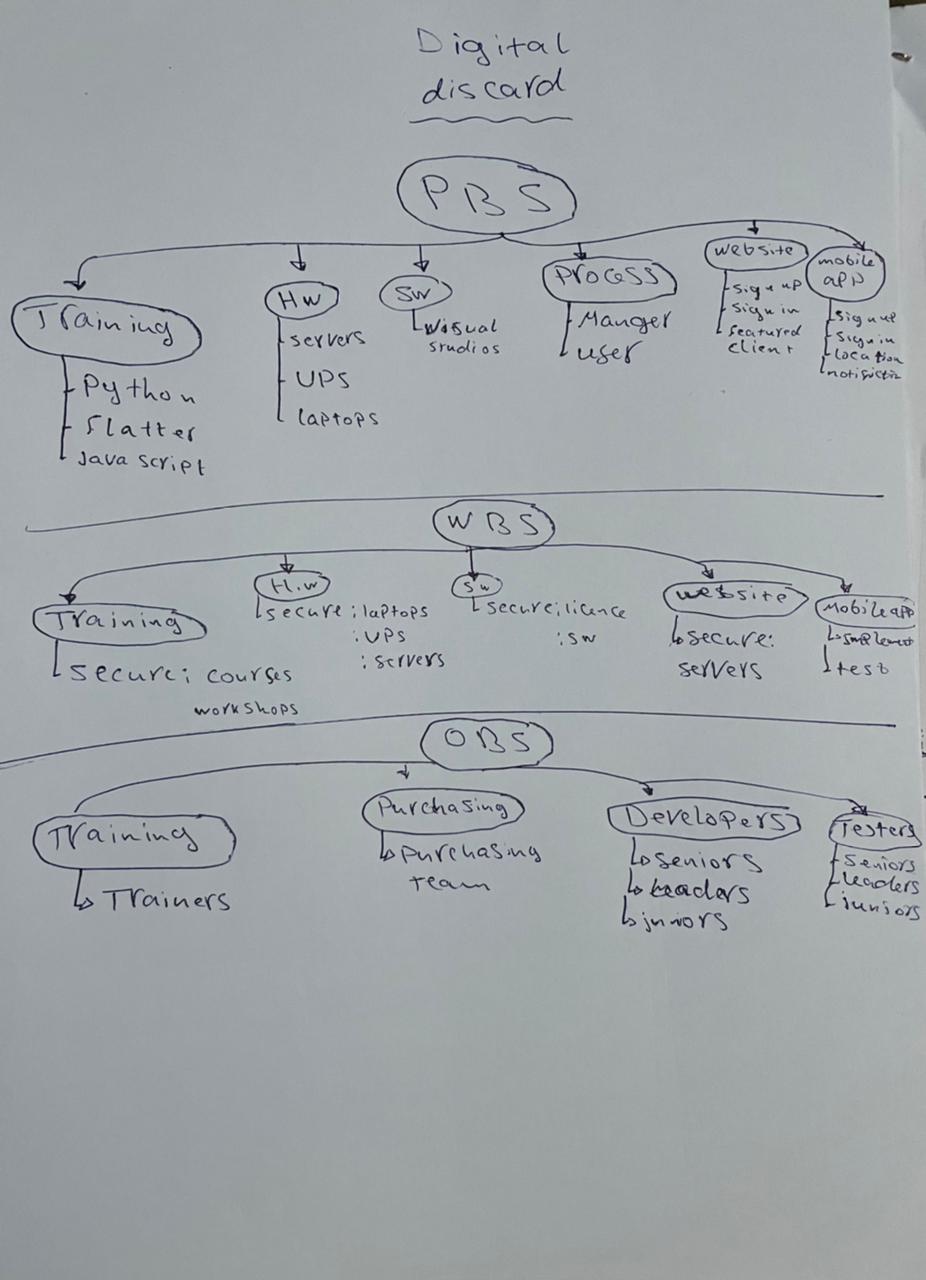 Digital
discard
PBS
Training
Python
flatter
Java script
HW
servers
UPS
laptops
SW
Visual
studios
Process
Manger
user
website
sign up
sign in
featured
client
mobile
app
sign up
sign in
location
WBS
Training
secure; courses
workshops
H.w
secure; laptops
: UPS
: servers
sw
secure; licence
: sw
website
secure:
servers
Mobile app
test
OBS
Training
Trainers
Purchasing
Purchasing
team
Developers
seniors
leaders
juniors
Testers
seniors
leaders
juniors